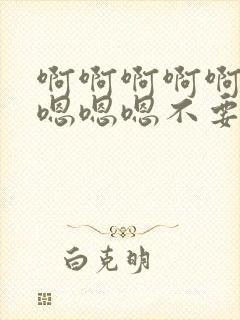 啊啊啊啊啊
嗯嗯嗯不要
白克明